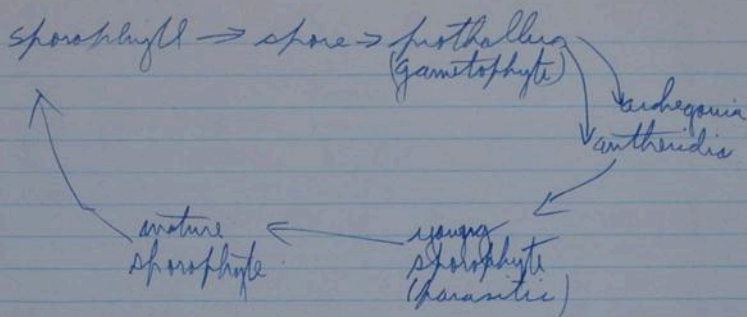 sporophyte → spore → prothallus
(gametophyte)
archegonia
antheridia
young
sporophyte
(parasitic)
mature
sporophyte